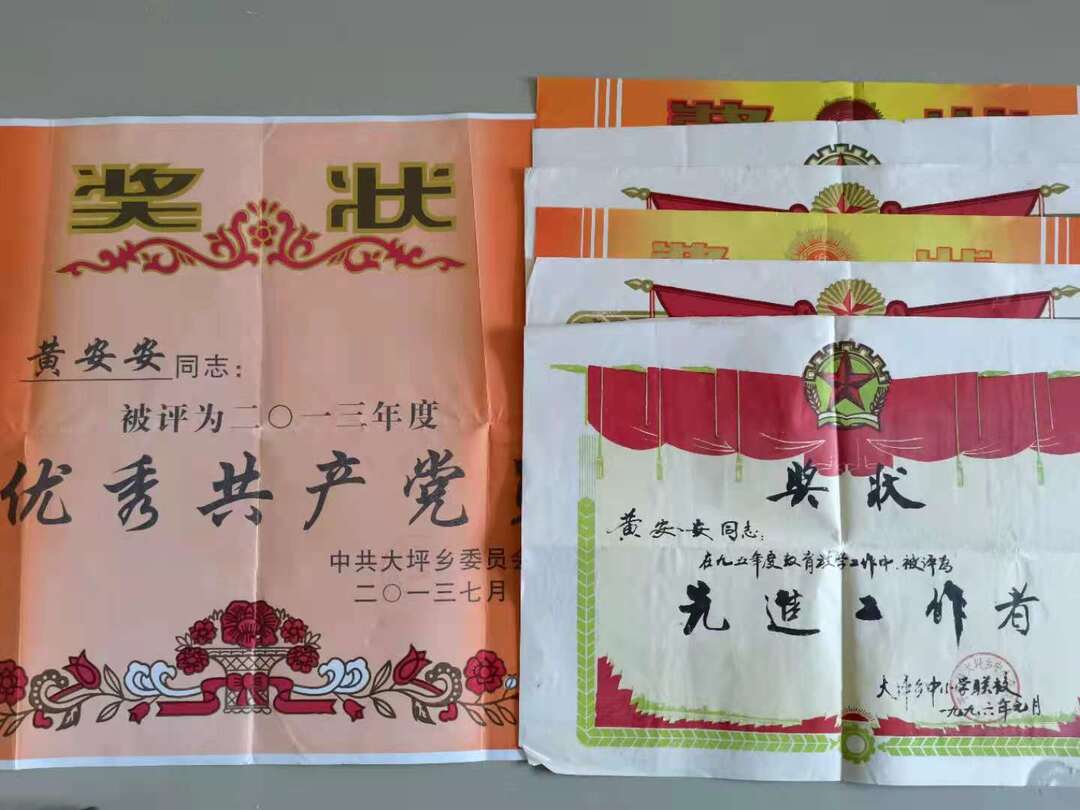 奖状
黄安安同志：
被评为二〇一三年度
优秀共产党
中共大坪乡委员会
二〇一三七月
奖状
奖状
奖状
黄安安同志：
在九五年度教育教学工作中，被评为
先进工作者
大坪乡中小学联校
一九九六年元月